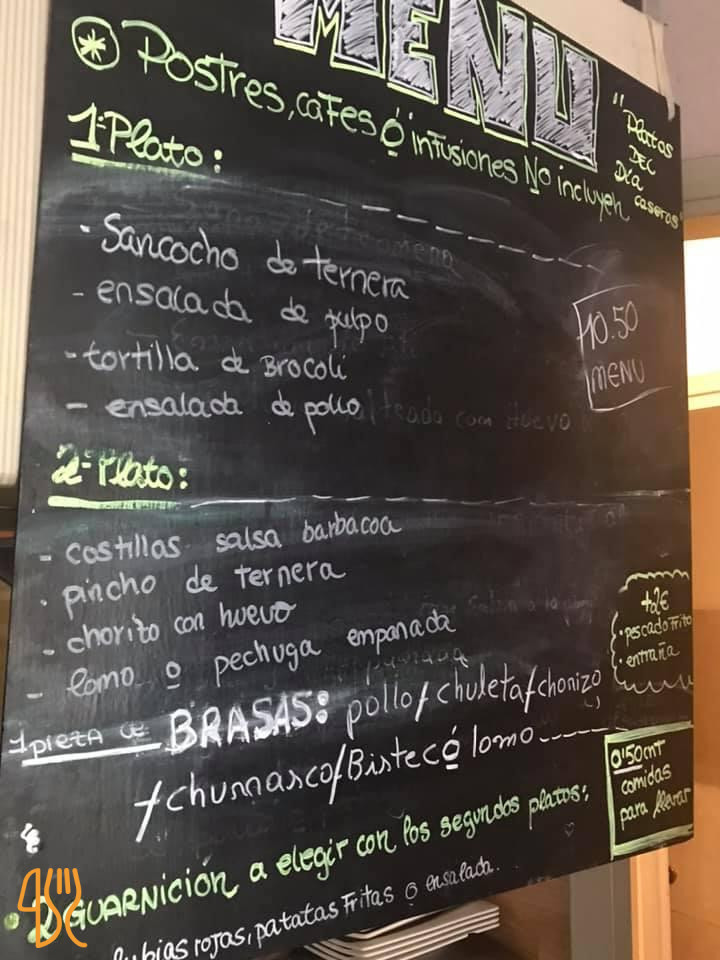 MENU
* Postres, cafes ó infusiones No incluyen
"Platos
DEL
Día
caseros"
1º Plato:
· Sancocho de ternera
- ensalada de pulpo
- tortilla de Brocoli
- ensalada de pollo
10.50
MENU
2º Plato:
- costillas salsa barbacoa
· pincho de ternera
- chorito con huevo
- lomo o pechuga empanada
+2€
· pescado Frito
· entraña
1 pieza de BRASAS: pollo/chuleta/chorizo
/churrasco/Bistec ó lomo
0'50cnt
comidas
para llevar
GUARNICIÓN a elegir con los segundos platos:
rojas, patatas fritas o ensalada.